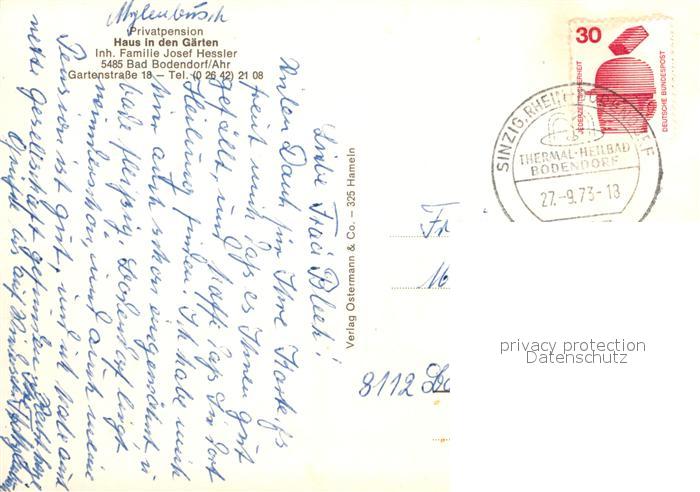 Privatpension
Haus in den Gärten
Inh. Familie Josef Hessler
5485 Bad Bodendorf/Ahr
Gartenstraße 18 — Tel. (0 26 42) 21 08
Liebe Frau Blech!
Vielen Dank für Ihre Karte, es
freut mich daß es Ihnen gut
gefällt, und hoffe daß Sie dort
Heilung finden. Ich habe mich
hier auch schon eingewöhnt u.
bad fleißig. Bodendorf liegt
wunderschön, und auch meine
Pension ist gut, und ich habe auch
nette Gesellschaft gefunden
auf
Verlag Ostermann & Co. — 325 Hameln
30
JEDERZEIT SICHERHEIT
DEUTSCHE BUNDESPOST
SINZIG, RHEIN
THERMAL-HEILBAD
BODENDORF
27.-9.73-18
Fr
8112
privacy protection
Datenschutz